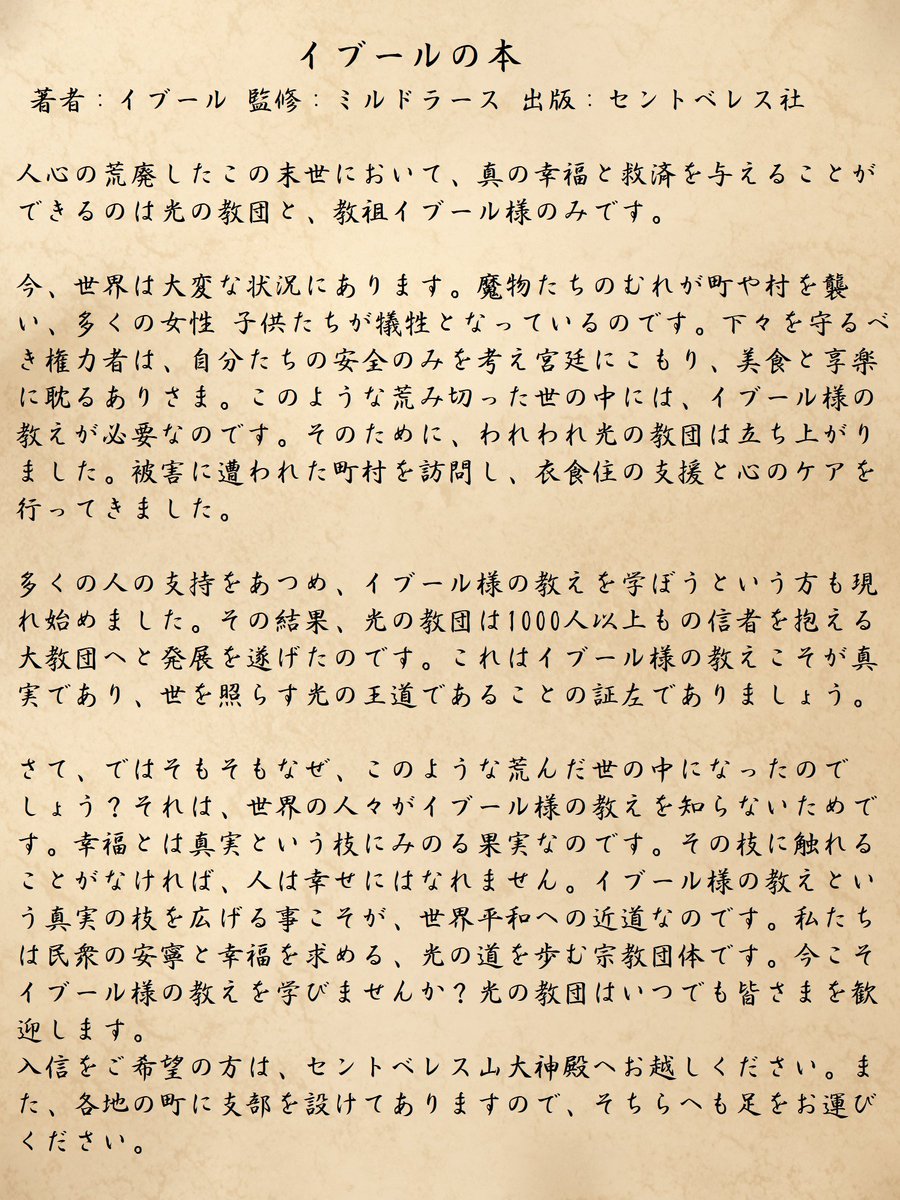 イブールの本
著者：イブール 監修：ミルドラース 出版：セントベレス社
人心の荒廃したこの末世において、真の幸福と救済を与えることが
できるのは光の教団と、教祖イブール様のみです。
今、世界は大変な状況にあります。魔物たちのむれが町や村を襲
い、多くの女性 子供たちが犠牲となっているのです。下々を守るべ
き権力者は、自分たちの安全のみを考え宮廷にこもり、美食と享楽
に耽るありさま。このような荒み切った世の中には、イブール様の
教えが必要なのです。そのために、われわれ光の教団は立ち上がり
ました。被害に遭われた町村を訪問し、衣食住の支援と心のケアを
行ってきました。
多くの人の支持をあつめ、イブール様の教えを学ぼうという方も現
れ始めました。その結果、光の教団は1000人以上もの信者を抱える
大教団へと発展を遂げたのです。これはイブール様の教えこそが真
実であり、世を照らす光の王道であることの証左でありましょう。
さて、ではそもそもなぜ、このような荒んだ世の中になったので
しょう？それは、世界の人々がイブール様の教えを知らないためで
す。幸福とは真実という枝にみのる果実なのです。その枝に触れる
ことがなければ、人は幸せにはなれません。イブール様の教えとい
う真実の枝を広げる事こそが、世界平和への近道なのです。私たち
は民衆の安寧と幸福を求める、光の道を歩む宗教団体です。今こそ
イブール様の教えを学びませんか？光の教団はいつでも皆さまを歓
迎します。
入信をご希望の方は、セントベレス山大神殿へお越しください。ま
た、各地の町に支部を設けてありますので、そちらへも足をお運び
ください。